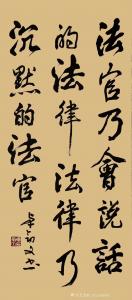 法官乃會說話
的法律法律乃
沉默的法官